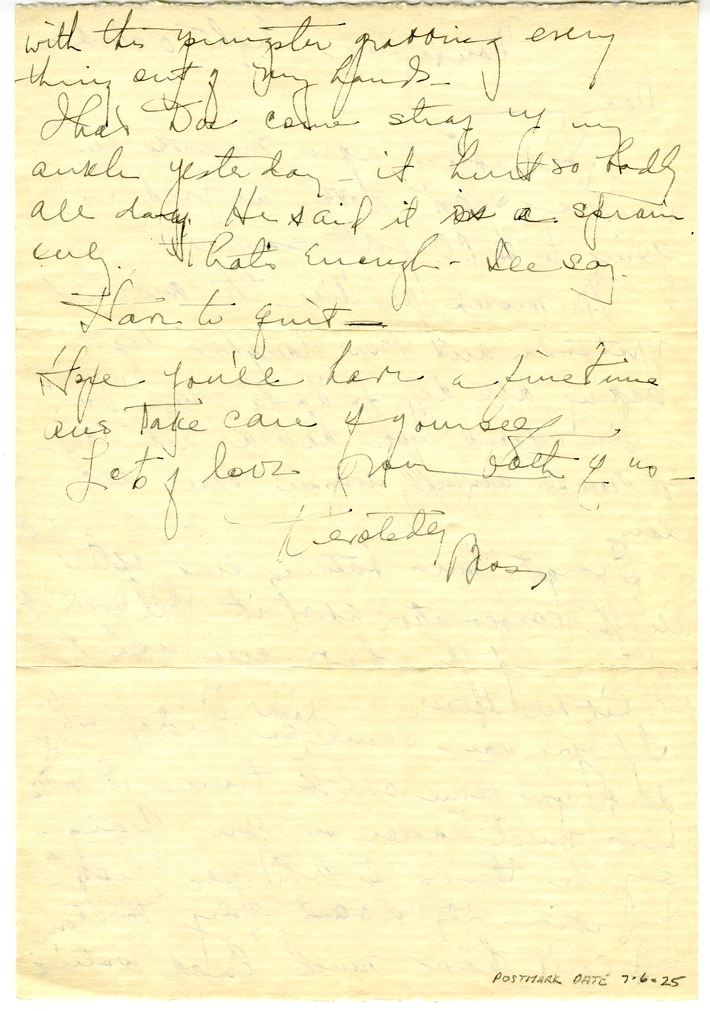 with this youngster grabbing every
thing out of my hands -
I had Doc come strap up my
ankle yesterday - it hurt so badly
all day. He said it is a sprain
only. That's enough - I'll say.
Have to quit -
Hope you'll have a fine time
and take care of yourself
Lots of love from both of us -
Devotedly
POSTMARK DATE 7-6-25